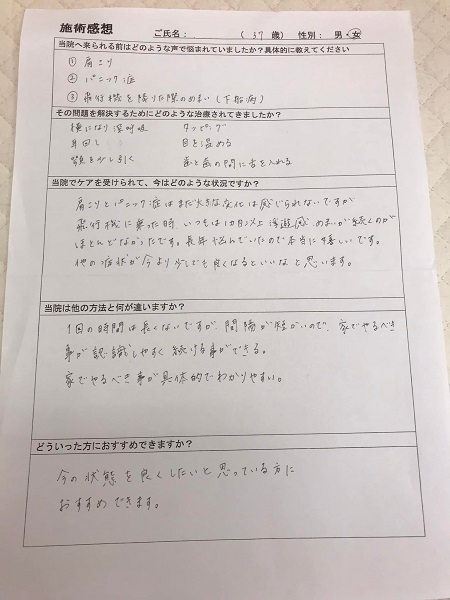 施術感想 ご氏名: ( 37 歳) 性別: 男・女
当院へ来られる前はどのような声で悩まれていましたか?具体的に教えてください
① 肩こり
② パニック症
③ 飛行機を降りた際のめまい(下船病)
その問題を解決するためにどのような治療されてきましたか?
横になり深呼吸 タッピング
耳回し 目を温める
顎を少し引く 歯と歯の間に舌を入れる
当院でケアを受けられて、今はどのような状況ですか?
肩こりとパニック症はまだ大きな変化は感じられないですが
飛行機に乗った時、いつもは1カ月以上浮遊感、めまいが続くのが
ほとんどなかったです。長年悩んでいたので本当に嬉しいです。
他の症状が今より少しでも良くなるといいなと思います。
当院は他の方法と何が違いますか?
1回の時間は長くないですが、間隔が短かいので、家でやるべき
事が認識しやすく続ける事ができる。
家でやるべき事が具体的でわかりやすい。
どういった方におすすめできますか?
今の状態を良くしたいと思っている方に
おすすめできます。